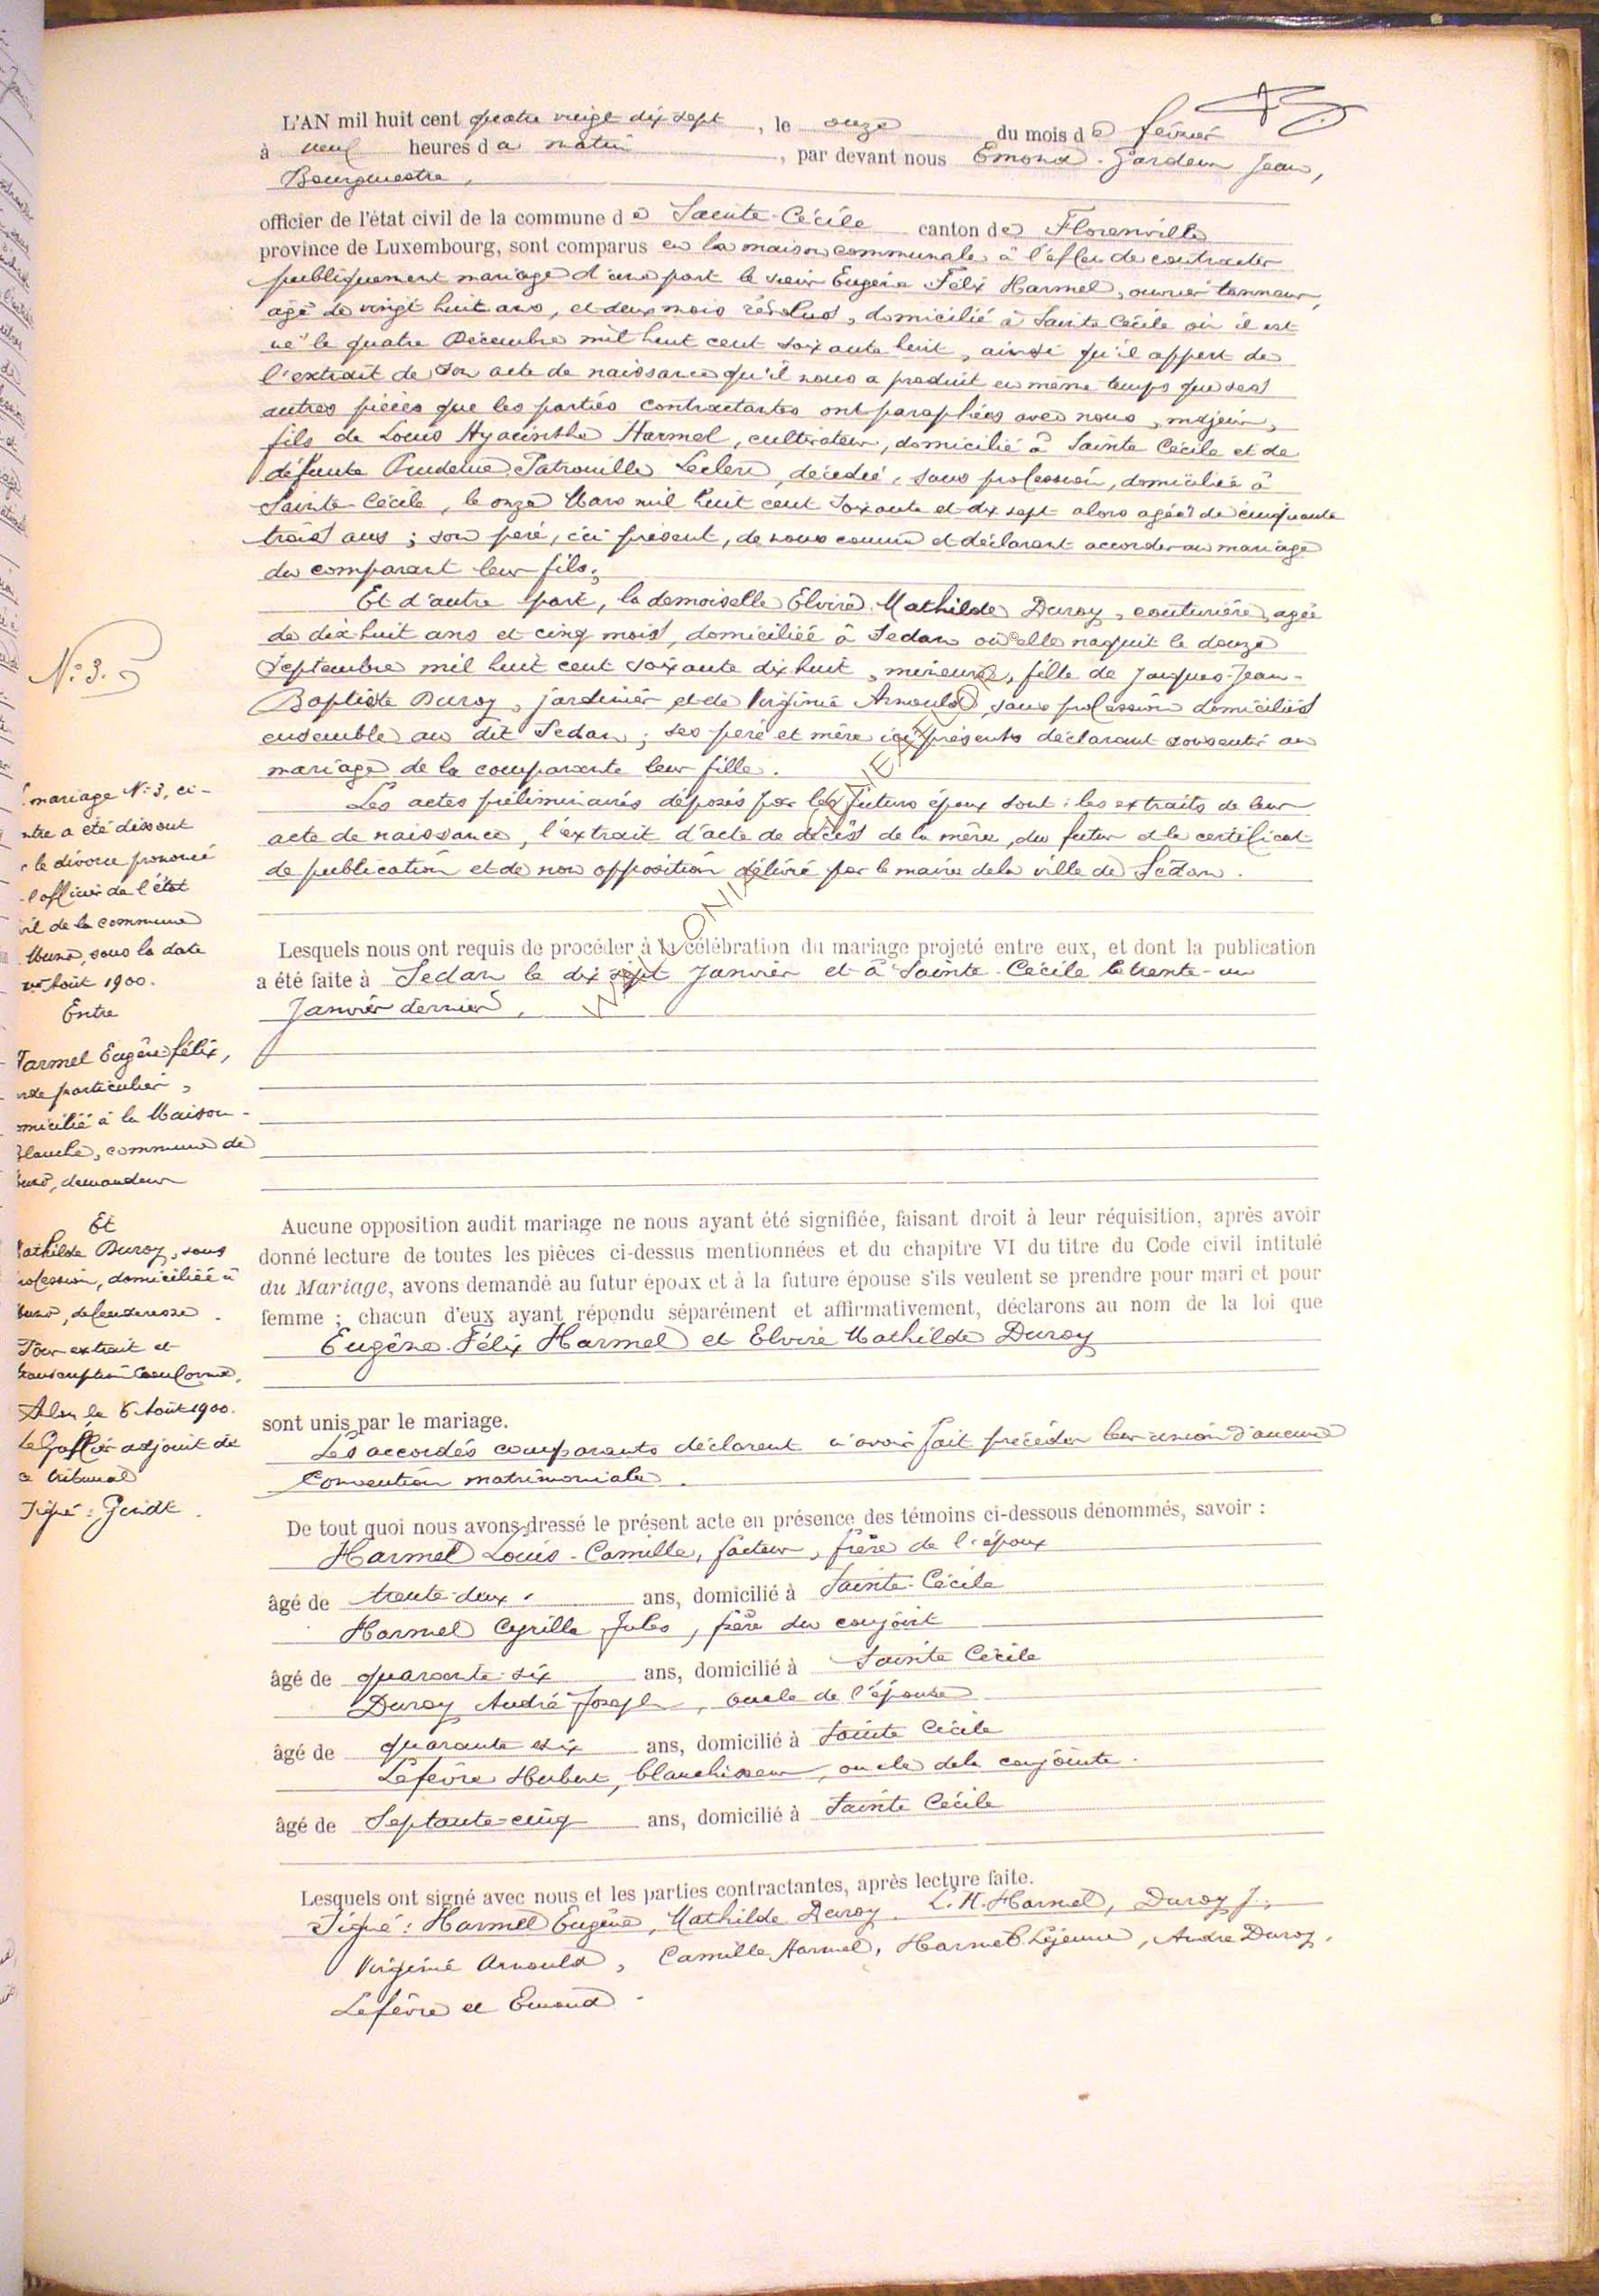 L'AN mil huit cent quatre vingt dix sept, le onze du mois de février
à neuf heures du matin, par devant nous Emond-Gardeur Jean,
Bourgmestre,
officier de l'état civil de la commune de Sainte-Cécile canton de Florenville
province de Luxembourg, sont comparus en la maison communale à l'effet de contracter
publiquement mariage d'une part le sieur Eugène Félix Harmel, ouvrier tanneur,
agé de vingt huit ans, et deux mois révolus, domicilié à Sainte Cécile où il est
né le quatre Décembre mil huit cent soixante huit, ainsi qu'il appert de
l'extrait de son acte de naissance qu'il nous a produit en même temps que ses
autres pièces que les parties contractantes ont paraphées avec nous, majeur,
fils de Louis Hyacinthe Harmel, cultivateur, domicilié à Sainte Cécile et de
défunte Prudence Patrouille Leclere, décédée, sans profession, domiciliée à
Sainte-Cécile, le onze Mars mil huit cent soixante et dix sept alors agée de cinquante
trois ans ; son père, ici présent, de nous connu et déclarant accorder au mariage
du comparant leur fils ;
Et d'autre part, la demoiselle Elvire Mathilde Duroy, couturière, agée
de dix huit ans et cinq mois, domiciliée à Sedan où elle naquit le douze
Septembre mil huit cent soixante dix huit, mineure, fille de Jacques-Jean-
Baptiste Duroy, jardinier et de Virginie Arnould, sans profession domiciliés
ensemble au dit Sedan ; ses père et mère ici présents déclarant consentir au
mariage de la comparante leur fille.
Les actes préliminaires déposés par les futurs époux sont : les extraits de leur
acte de naissance, l'extrait d'acte de décès de la mère du futur et le certificat
de publication et de non opposition délivré par le maire de la ville de Sedan.
Lesquels nous ont requis de procéder à la célébration du mariage projeté entre eux, et dont la publication
a été faite à Sedan le dix sept Janvier et à Sainte-Cécile le trente-un
Janvier dernier,
Aucune opposition audit mariage ne nous ayant été signifiée, faisant droit à leur réquisition, après avoir
donné lecture de toutes les pièces ci-dessus mentionnées et du chapitre VI du titre du Code civil intitulé
du Mariage, avons demandé au futur époux et à la future épouse s'ils veulent se prendre pour mari et pour
femme ; chacun d'eux ayant répondu séparément et affirmativement, déclarons au nom de la loi que
Eugène-Félix Harmel et Elvire Mathilde Duroy
sont unis par le mariage.
Les accordés comparants déclarent n'avoir fait précéder leur union d'aucune
Convention matrimoniale.
De tout quoi nous avons dressé le présent acte en présence des témoins ci-dessous dénommés, savoir :
Harmel Louis-Camille, facteur, frère de l'époux
âgé de trente-deux ans, domicilié à Sainte-Cécile
Harmel Cyrille Jules, frère du conjoint
âgé de quarante-six ans, domicilié à Sainte Cécile
Duroy André Joseph, oncle de l'épouse
âgé de quarante six ans, domicilié à Sainte Cécile
Lefèvre Hubert, blanchisseur, oncle de la conjointe.
âgé de Septante-cinq ans, domicilié à Sainte Cécile
Lesquels ont signé avec nous et les parties contractantes, après lecture faite.
Signé : Harmel Eugène, Mathilde Duroy. L. H. Harmel, Duroy J.,
Virginie Arnould, Camille Harmel, Harmel Lejeune, André Duroy,
Lefèvre et Emond.
N° 3.
mariage N° 3, ci-
ntre a été dissout
le divorce prononcé
l'officier de l'état
vil de la commune
Muno, sous la date
Août 1900.
Entre
Harmel Eugène Félix,
rde particulier,
micilié à la Maison-
Blanche, commune de
Muno, demandeur
Et
Mathilde Duroy, sans
rofession, domiciliée à
Muno, défenderesse.
Pour extrait et
transcription conforme,
Arlon, le 6 Août 1900.
Le Greffier adjoint de
ce tribunal
Signé :
WALLONIA ANNEXE ELOR